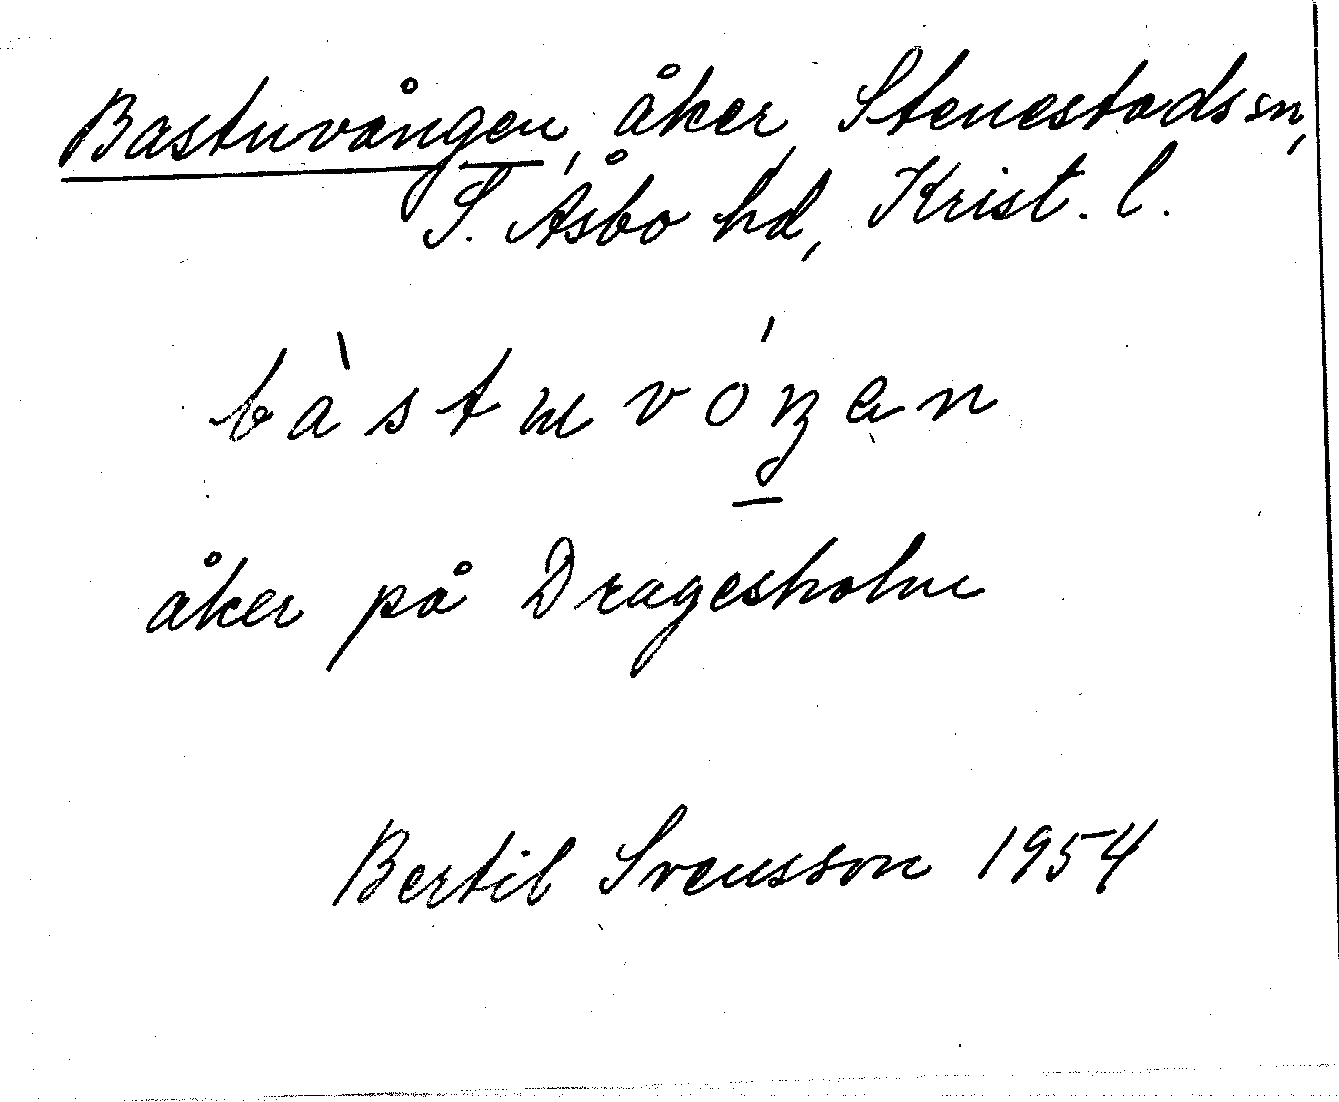 Bastuvången, åker, Stenestads sn,
S. Åsbo hd, Krist. l.
bàstuvóŋan
åker på Dragesholm
Bertil Svensson 1954